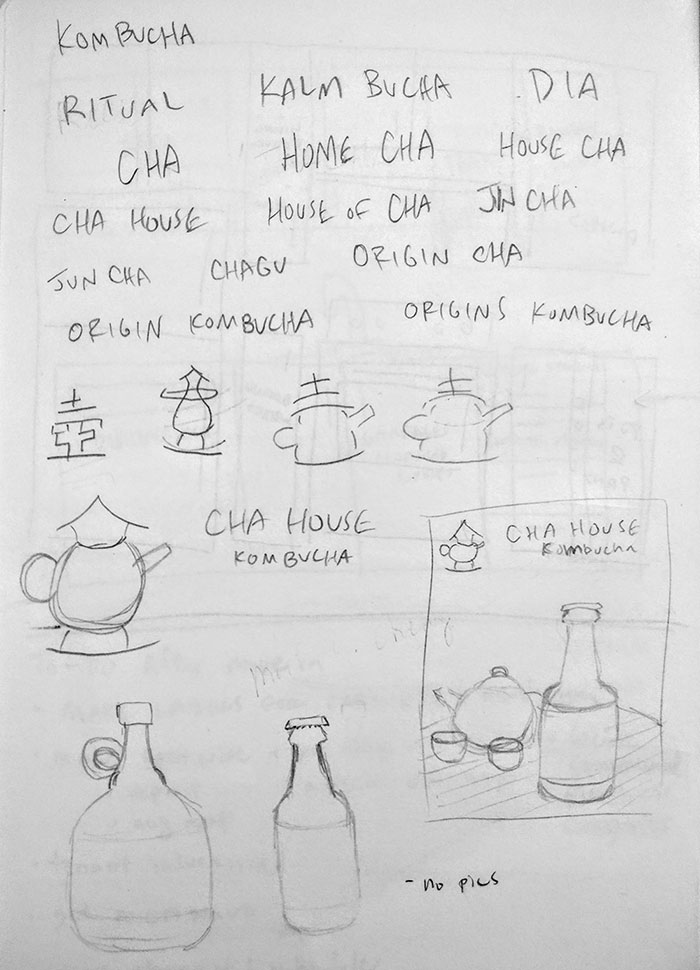 KOMBUCHA
RITUAL KALM BUCHA DIA
CHA HOME CHA HOUSE CHA
CHA HOUSE HOUSE OF CHA JIN CHA
JUN CHA CHAGU ORIGIN CHA
ORIGIN KOMBUCHA ORIGINS KOMBUCHA
CHA HOUSE
KOMBUCHA
CHA HOUSE
Kombucha
- no pics